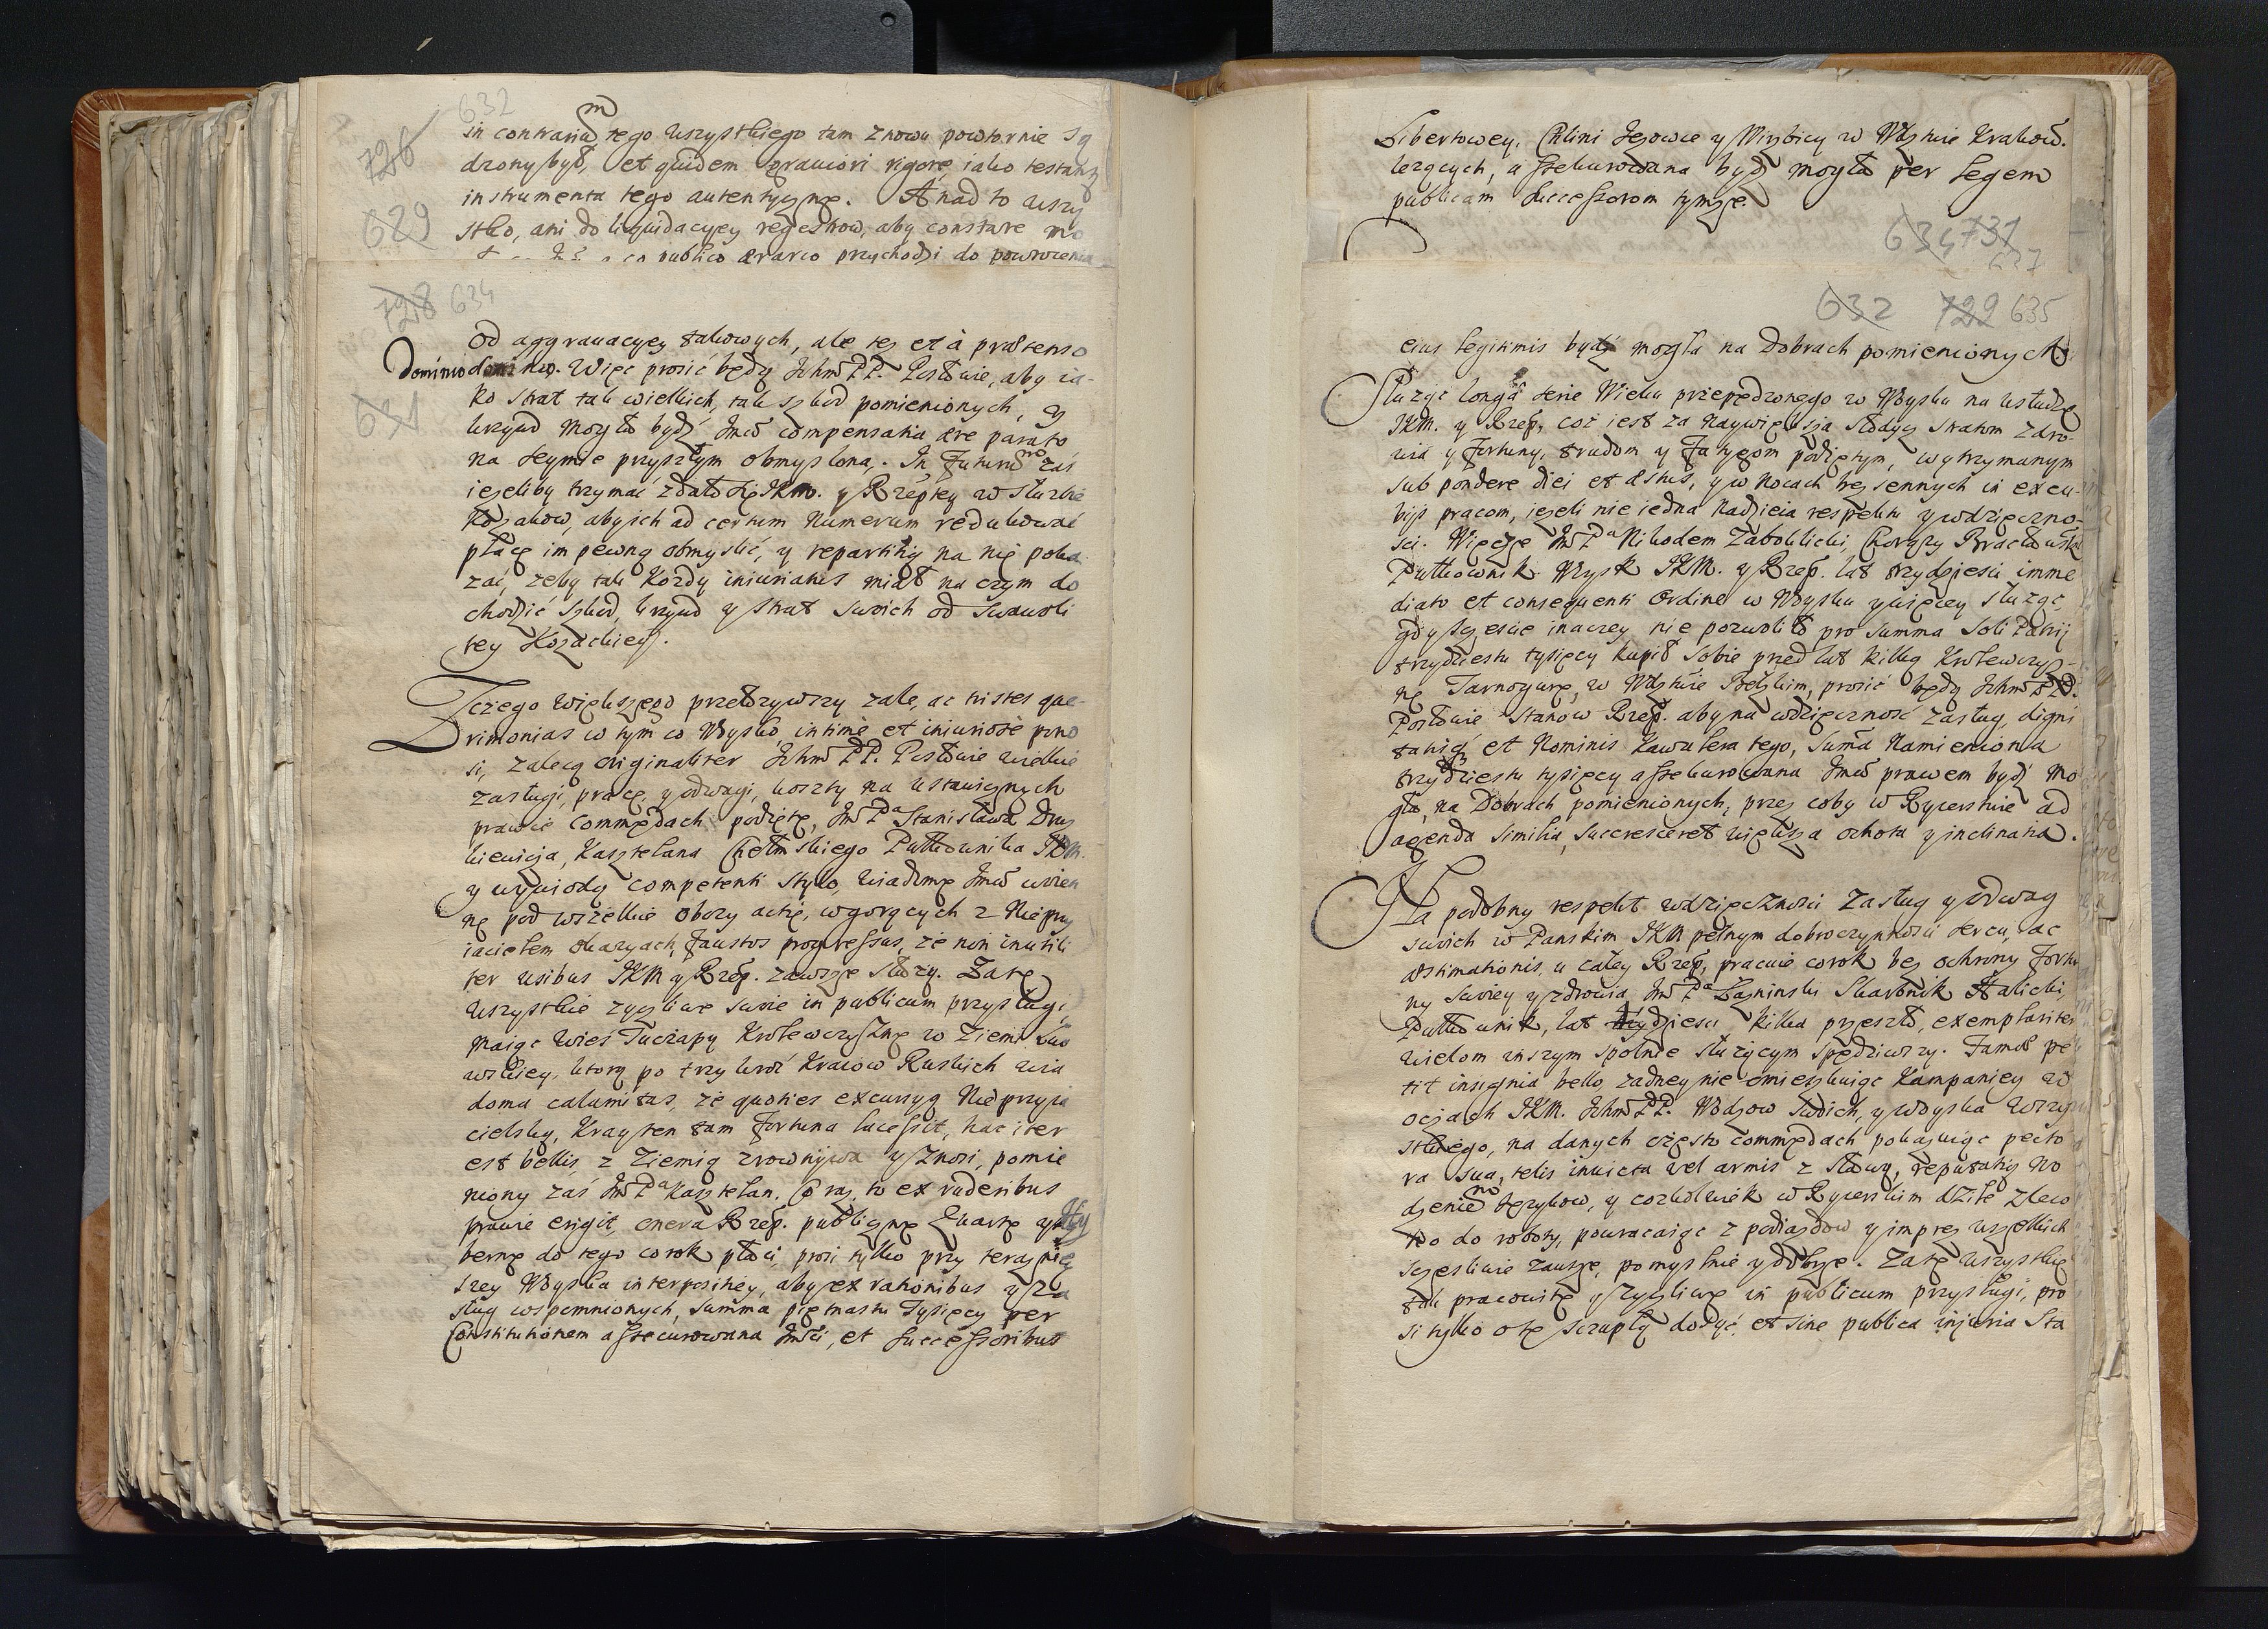 632
in contrariu m tego wszystkiego tam znowu powtornie są
726
dzony był, et quidem graviori rigore, iako testant
instrumenta tego autentyczne. A nad to wszy
629
stko, ani do liquidacyey regestrow, aby constare mo
publico aerario przychodzi do powrocenia
728 634
od aggrawacyey takowych, ale tez et à praetenso
Dominio. Więc prosić będą Ichm PP. Posłowie, aby ia-
631
ko strat tak wielkich, tak szkod pomienionych, y
krzywd mogła bydź Imci compensatia aere parato
na Seymie przyszłym obmyslona. In Futurum zaś
ieżeliby trzymać zdało się JKM. y Rzeptey w służbie
Kozakow, aby ich ad certum numerum redukować
płacę im pewną obmyslić, y repartitią na nię poka
zać, zeby tak kozdy iniuriatus miał na czym do
chodzić szkod, krzywd y strat swoich od swawoli
tey Kozackiey.
Z czego większego przełzywszy zale, ac tristes que-
rimonias w tym co Woysko, intimè et iniuriosè pono
si, zalecą originaliter Ichm PP. Posłowie wielkie
zasługi, pracę, y odwagi, koszty na ustawicznych
prawie commędach podięte, Im Pa Stanisława Dru
kiewicza, Kasztelana Chełmskiego Pułkownika JKM.
y wywiodą competenti stylo, wiadome Imci uwień
ne pod wszelkie obozy actie, w gorących z Nieprzy
iacielem okazyach, faustos progressus, że non inutili
ter usibus JKM y Rzep. zawsze służy. Za te
wszystkie zyczliwe swoie in publicum przysługi,
maiąc wieś Tuczapy Krolewczyznę w Ziemi Lwo
wskiey, ktorą po trzykroć Kraiow Ruskich wia
doma calamitas, że quoties excursyą Nieprzyia
cielską, Kray ten tam Fortuna lacessit, hac iter
est bellis, z Ziemią zrownywa y znosi, pomie
niony zaś Im Pa Kasztelan. Coraz to ex ruderibus
prawie erigit, onera Rzep. publiczne kwartę y hy
bernę do tego corok płaci, prosi tylko przy terazniey
szey Woyska interpositiey, aby ex rationibus y za
sług wspomnionych, summa piętnastu Tysięcy per
Constitutionem assecurowana Imści, et Successoribus
Libertowey, Chlini Jezowce y Wierzbicy w Wdztwie Krakow.
lezących, assekurowana bydź mogła per legem
publicam Successorom tymze.
634 731
637
632 729 635
eius legitimis bydź mogła na Dobrach pomienionych
Służąc longâ serie Wieku przepędzonego w Woysku na usłudze
JKM. y Rzep, coż iest za naywiększa słodycz stratom zdro-
wia y fortuny, trudom y fatygom podiętym, wytrzymanym
sub pondere diei et aestus, y w nocach bezsennych in excu-
bijs pracom, ieżeli nie iedna nadzieia respektu y wdzięczno-
ści. Więcże Im Pa Nikodem Zaboklicki, Chorązy Bracławski
Pułkownik Woysk JKM. y Rzep. lat trzydzieści imme
diato et consequenti ordine w Woysku y więcey służąc,
gdy szczęście inaczey nie pozwoliło pro summa Soli Patrij
trzydziestu tysięcy kupił sobie przed lat kilką Krolewczyz-
nę Tarnogurę, w Wdztwie Bełzkim, prosić będą Ichm PP.
Posłowie Stanow Rzep. aby na wdzięczność zasług, digni
tatisq et Nominis Kawalera tego, suma namieniona
trzydziestu tysięcy assekurowana Imci prawem bydź mo
gła, na Dobrach pomienionych, przez coby w Rycerstwie ad
agenda similia, succresceret większa ochota y inclinatia.
Na podobny respekt wdzięczności zasług y odwag
swoich w Panskim JKM pełnym dobroczynności sercu, ac
aestimationis, u całey Rzep, prawie corok bez ochrony Fortu
ny swoiey y zdrowia, Im Pa Łazninski Skarbnik Halicki,
Pułkownik, lat trzydzieści kilka przeszło, exemplariter
wielom inszym społnie służącym spędziwszy. Famâ pe
tit insignia bello, zadney nie omieszkuiąc Kampaniey w
oczach JKM. Ichm PP. Wodzow swoich, y Woyska wszy
stkiego, na danych często commędach pokazuiąc pecto
ra sua, telis invicta vel armis z sławą, reputatią no
dzenie Języków, y cozkolwiek w Rycerskim dziele zleco
no do roboty, powracaiąc z podiazdow y imprez wszelkich
szczęśliwie zawsze, pomyslnie y dobrze. Za te wszystkie
tak pracowite y zyczliwe in publicum przysługi, pro
si tylko o tę szczupłą dosyć, et sine publica injuria Sta